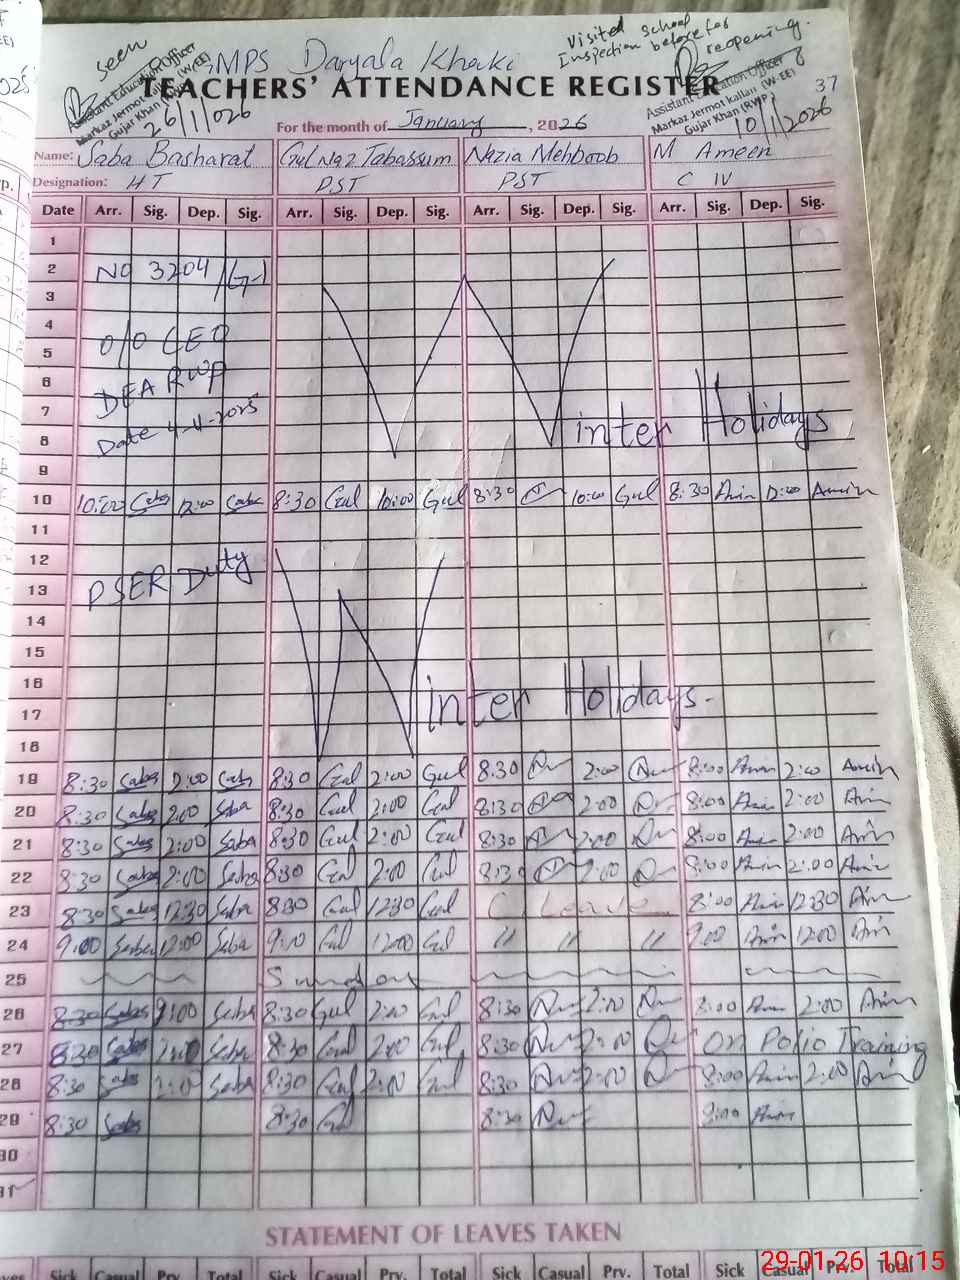 seen
GMPS Daryala Khaki
Visited School
Inspection before for
reopening.
TEACHERS' ATTENDANCE REGISTER
37
Assistant Education Officer
Markaz Jermot kallan (W-EE)
Gujar Khan (RWP)
26/1/026
Assistant Education Officer
Markaz Jermot kallan (W-EE)
Gujar Khan (RWP)
10/1/2026
For the month of January, 2026
Name: Saba Basharat Gul Naz Tabassum Nazia Mehboob M Ameen
Designation: HT PST PST C IV
Date Arr. Sig. Dep. Sig. Arr. Sig. Dep. Sig. Arr. Sig. Dep. Sig. Arr. Sig. Dep. Sig.
1
2 NO 3204/G-I
3
4 O/O CEO
5
6 DEA RWP
7 Date 4-4-2025
8 Winter Holidays
9
10 10:00 Saba 12:00 Saba 8:30 Gul 10:00 Gul 8:30 10:00 Gul 8:30 Amin 12:00 Amin
11
12
13 PSER Duty
14
15
16
17 Winter Holidays.
18
19 8:30 Saba 2:00 Saba 8:30 Gul 2:00 Gul 8:30 2:00 8:00 Amin 2:00 Amin
20 8:30 Saba 2:00 Saba 8:30 Gul 2:00 Gul 8:30 2:00 8:00 Amin 2:00 Amin
21 8:30 Saba 2:00 Saba 8:30 Gul 2:00 Gul 8:30 2:00 8:00 Amin 2:00 Amin
22 8:30 Saba 2:00 Saba 8:30 Gul 2:00 Gul 8:30 2:00 8:00 Amin 2:00 Amin
23 8:30 Saba 12:30 Saba 8:30 Gul 12:30 Gul C Leave 8:00 Amin 12:30 Amin
24 9:00 Saba 12:00 Saba 9:00 Gul 12:00 Gul " " " 9:00 Amin 12:00 Amin
25 Sunday
26 8:30 Saba 2:00 Saba 8:30 Gul 2:00 Gul 8:30 2:00 8:00 Amin 2:00 Amin
27 8:30 Saba 2:00 Saba 8:30 Gul 2:00 Gul 8:30 2:00 On Polio Training
28 8:30 Saba 2:00 Saba 8:30 Gul 2:00 Gul 8:30 2:00 8:00 Amin 2:00 Amin
29 8:30 Saba 8:30 Gul 8:30 8:00 Amin
30
31
STATEMENT OF LEAVES TAKEN
Sick Casual Prv. Total Sick Casual Prv. Total Sick Casual Prv. Total Sick Casual Prv. Total
29-01-26 10:15